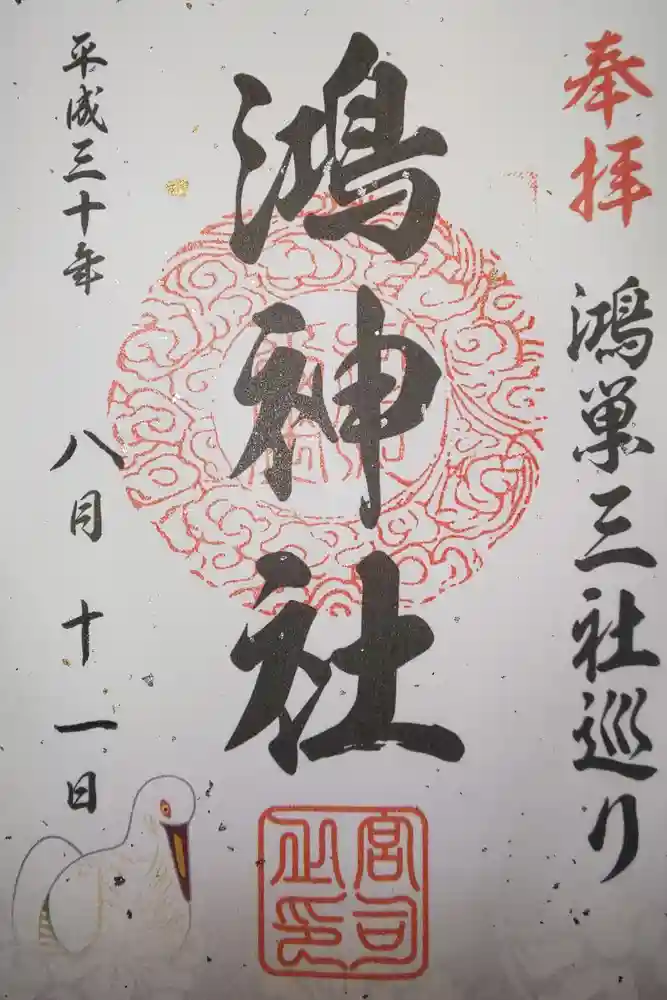 奉拝
鴻巣三社巡り
鴻神社
宮司之印
平成三十年
八月十一日